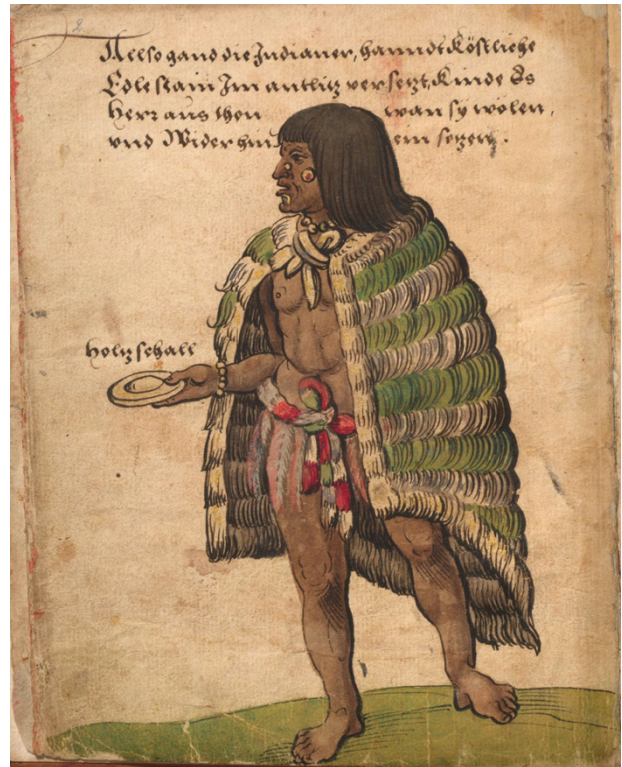 2
Allso gand die Indianer, hanndt köstliche
Edlestain Im antlitz versetzt, kinde Es
herr aus thon wan sy wolen,
vnd Wider hin ein setzen.
holtz schall